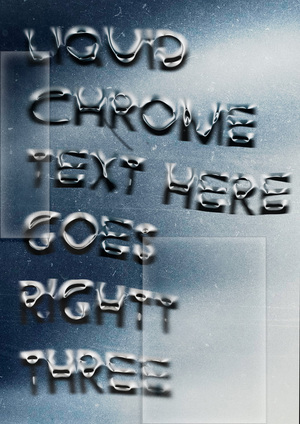 LIQUID
CHROME
TEXT HERE
GOES
RIGHTT
THREE